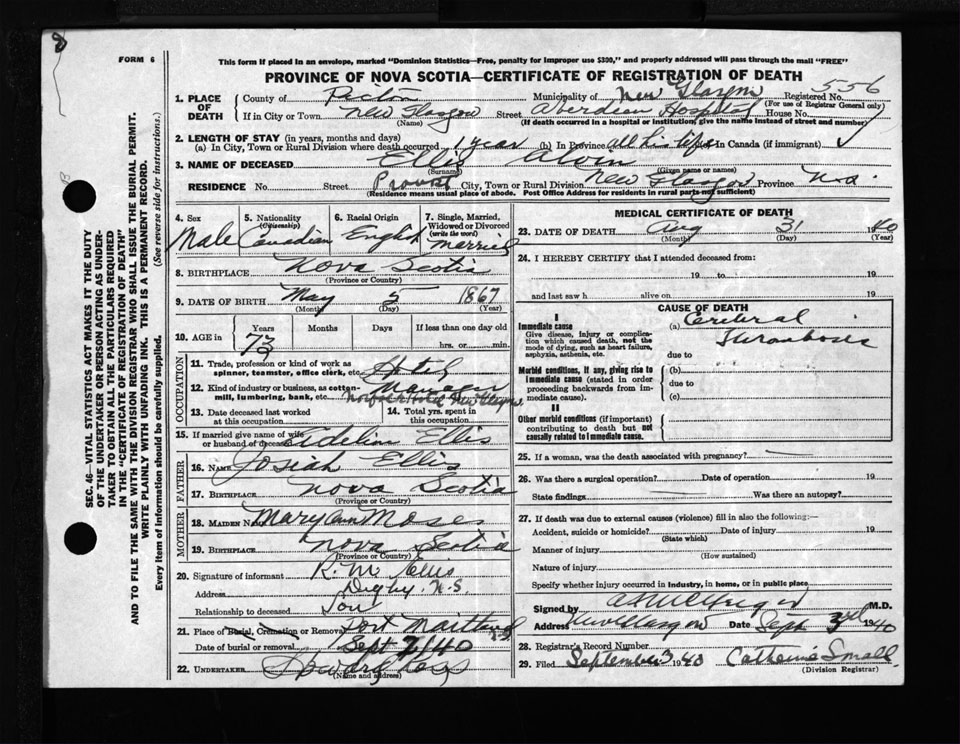 8
FORM 6
This form if placed in an envelope, marked "Dominion Statistics—Free, penalty for improper use $300," and properly addressed will pass through the mail "FREE"
PROVINCE OF NOVA SCOTIA—CERTIFICATE OF REGISTRATION OF DEATH
556
1. PLACE OF DEATH
County of Pictou Municipality of New Glasgow Registered No.
(For use of Registrar General only)
If in City or Town New Glasgow Street Aberdeen Hospital House No.
(Name) (If death occurred in a hospital or institution, give the name instead of street and number)
2. LENGTH OF STAY (in years, months and days)
(a) In City, Town or Rural Division where death occurred 1 year (b) In Province All his life (c) In Canada (if immigrant)
3. NAME OF DECEASED Ellis Alvin
(Surname) (Given name or names)
RESIDENCE No. Street Provost City, Town or Rural Division New Glasgow Province N.S.
(Residence means usual place of abode. Post Office Address for residents in rural parts not sufficient)
4. Sex
Male
5. Nationality
(Citizenship)
Canadian
6. Racial Origin
English
7. Single, Married, Widowed or Divorced
(write the word)
married
8. BIRTHPLACE Nova Scotia
(Province or Country)
9. DATE OF BIRTH May 5 1867
(Month) (Day) (Year)
10. AGE in
Years Months Days If less than one day old
73 hrs. or min.
OCCUPATION
11. Trade, profession or kind of work as spinner, teamster, office clerk, etc. Hotel
Manager
12. Kind of industry or business, as cotton-mill, lumbering, bank, etc. Norfolk Hotel New Glasgow
13. Date deceased last worked at this occupation
14. Total yrs. spent in this occupation
15. If married give name of wife or husband of deceased Adelia Ellis
FATHER
16. NAME Josiah Ellis
17. BIRTHPLACE Nova Scotia
(Province or Country)
MOTHER
18. MAIDEN NAME Mary Ann Moses
19. BIRTHPLACE Nova Scotia
(Province or Country)
20. Signature of informant R. M. Ellis
Address Digby, N.S.
Relationship to deceased Son
21. Place of Burial, Cremation or Removal Port Maitland N.S.
Date of burial or removal Sept /40
22. UNDERTAKER
(Name and address)
MEDICAL CERTIFICATE OF DEATH
23. DATE OF DEATH Aug 31 1940
(Month) (Day) (Year)
24. I HEREBY CERTIFY that I attended deceased from:
19 to 19
and last saw h alive on 19
CAUSE OF DEATH
I
Immediate cause
Give disease, injury or complication which caused death, not the mode of dying, such as heart failure, asphyxia, asthenia, etc.
(a) Cerebral
Thrombosis
due to
Morbid conditions, if any, giving rise to immediate cause (stated in order proceeding backwards from immediate cause).
(b)
due to
(c)
II
Other morbid conditions (if important) contributing to death but not causally related to immediate cause.
25. If a woman, was the death associated with pregnancy?
26. Was there a surgical operation? Date of operation 19
State findings Was there an autopsy?
27. If death was due to external causes (violence) fill in also the following:—
Accident, suicide or homicide? Date of injury 19
(State which)
Manner of injury
(How sustained)
Nature of injury
Specify whether injury occurred in industry, in home, or in public place
Signed by M.D.
Address New Glasgow Date Sept 3rd 1940
28. Registrar's Record Number
29. Filed September 3 1940 Catherine Small
(Division Registrar)
SEC. 46—VITAL STATISTICS ACT MAKES IT THE DUTY
OF THE UNDERTAKER OR PERSON ACTING AS UNDER-
TAKER TO OBTAIN ALL THE PARTICULARS REQUIRED
IN THE "CERTIFICATE OF REGISTRATION OF DEATH"
AND TO FILE THE SAME WITH THE DIVISION REGISTRAR WHO SHALL ISSUE THE BURIAL PERMIT.
WRITE PLAINLY WITH UNFADING INK. THIS IS A PERMANENT RECORD.
Every item of information should be carefully supplied. (See reverse side for instructions.)